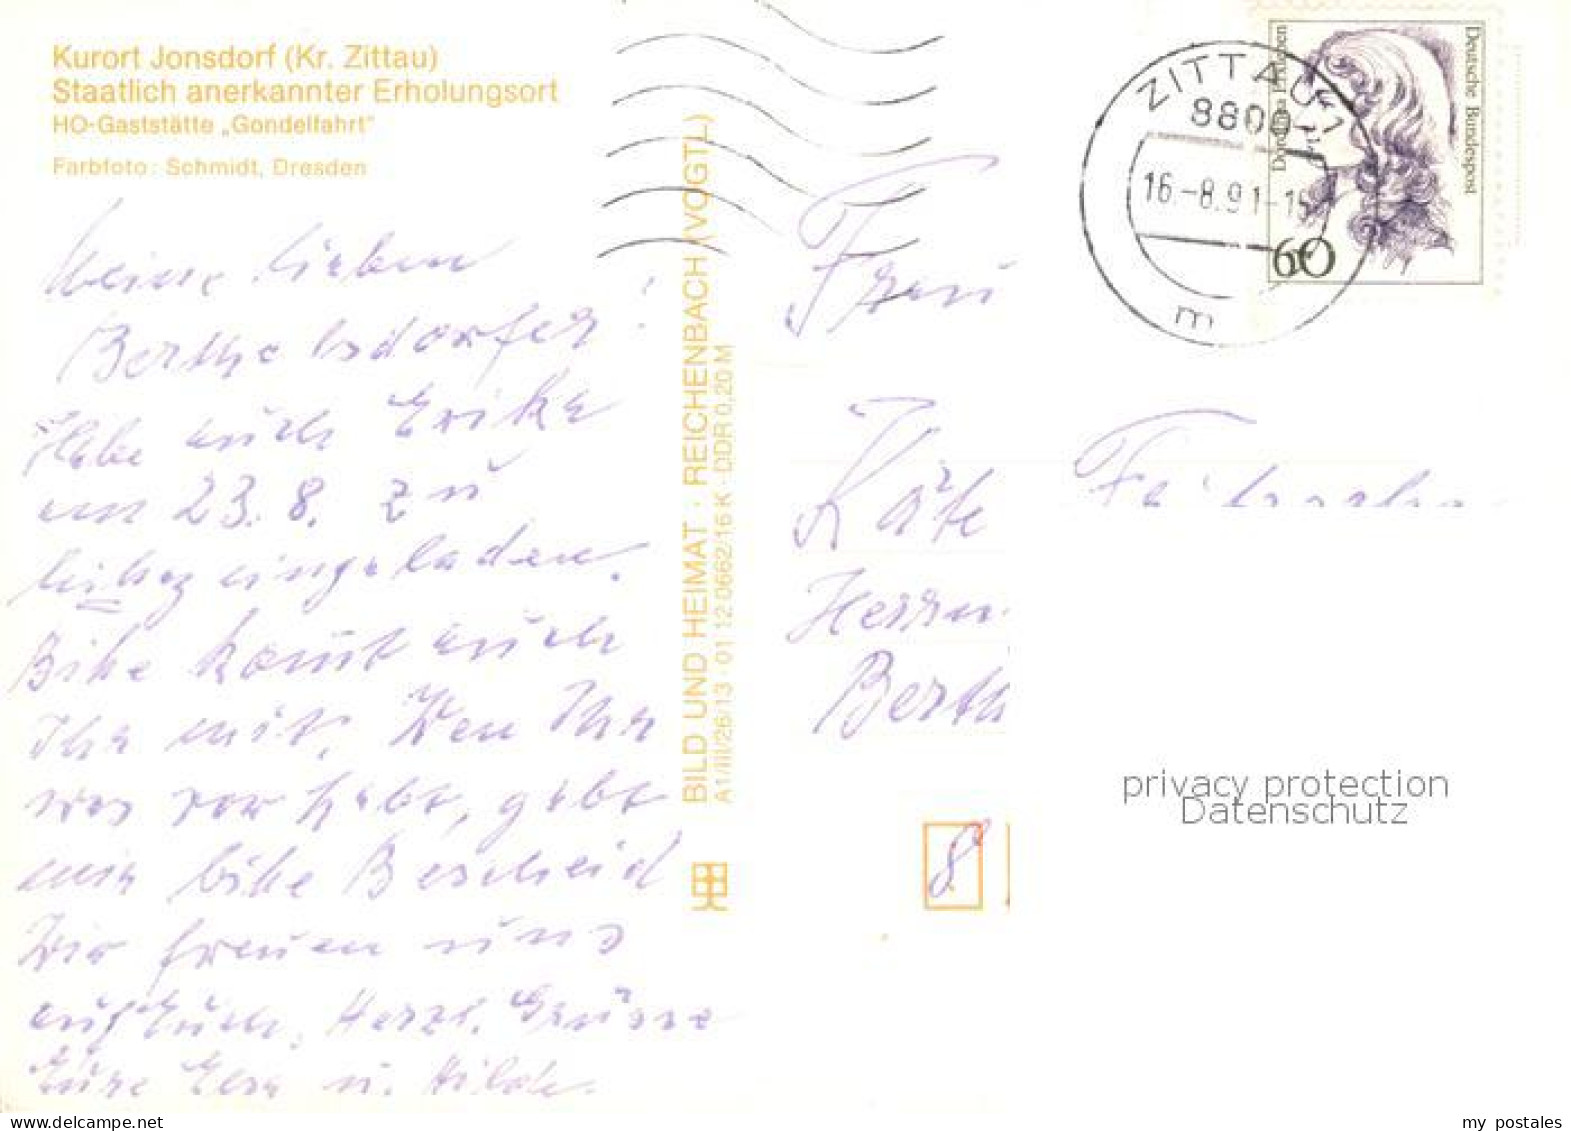 Kurort Jonsdorf (Kr. Zittau)
Staatlich anerkannter Erholungsort
HO-Gaststätte „Gondelfahrt"
Farbfoto: Schmidt, Dresden
Meine lieben
Berthelsdorfer!
Habe auch Erika
am 23. 8. zu
eingeladen.
Bitte komt auch
Ihr mit. Wen Ihr
was vor habt, gebt
mir bitte Bescheid
Wir freuen uns
auf Euch. Herzl. Grüsse
Eure Elsa u. Hilde.
BILD UND HEIMAT · REICHENBACH (VOGTL)
A1/III/26/13 · 01 12 0662/16 K · DDR 0,20 M
ZITTAU 1
8800
16.-8.91-15
m
Deutsche Bundespost
60
Frau
Käte
Herrn
Berth
8
privacy protection
Datenschutz
my postales